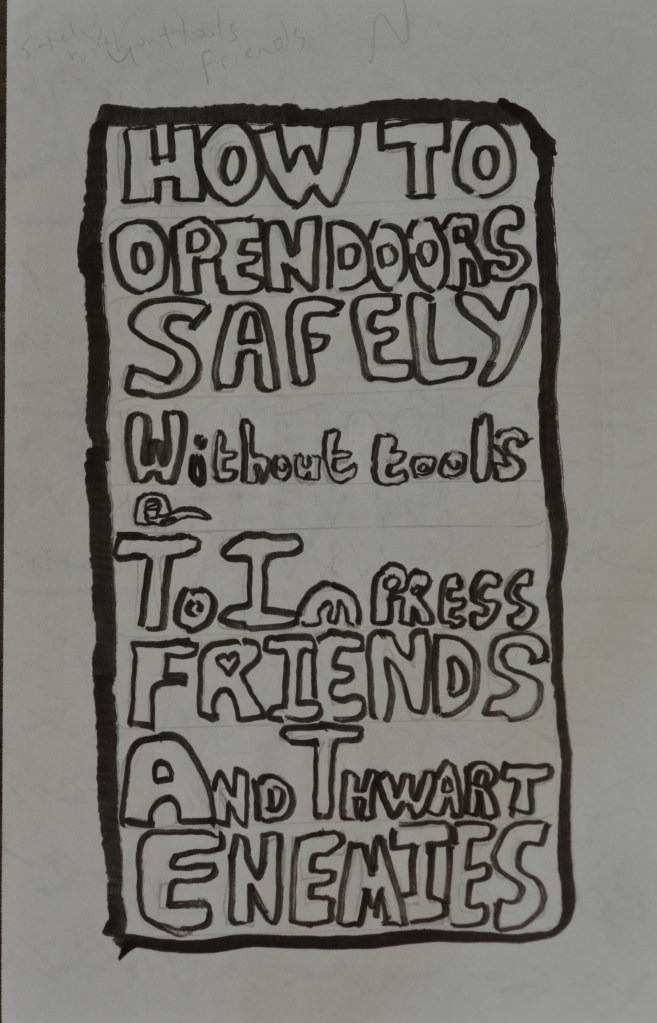 safely
without tools
friends
HOW TO
OPEN DOORS
SAFELY
Without tools
To ImPRESS
FRIENDS
AND THWART
ENEMIES